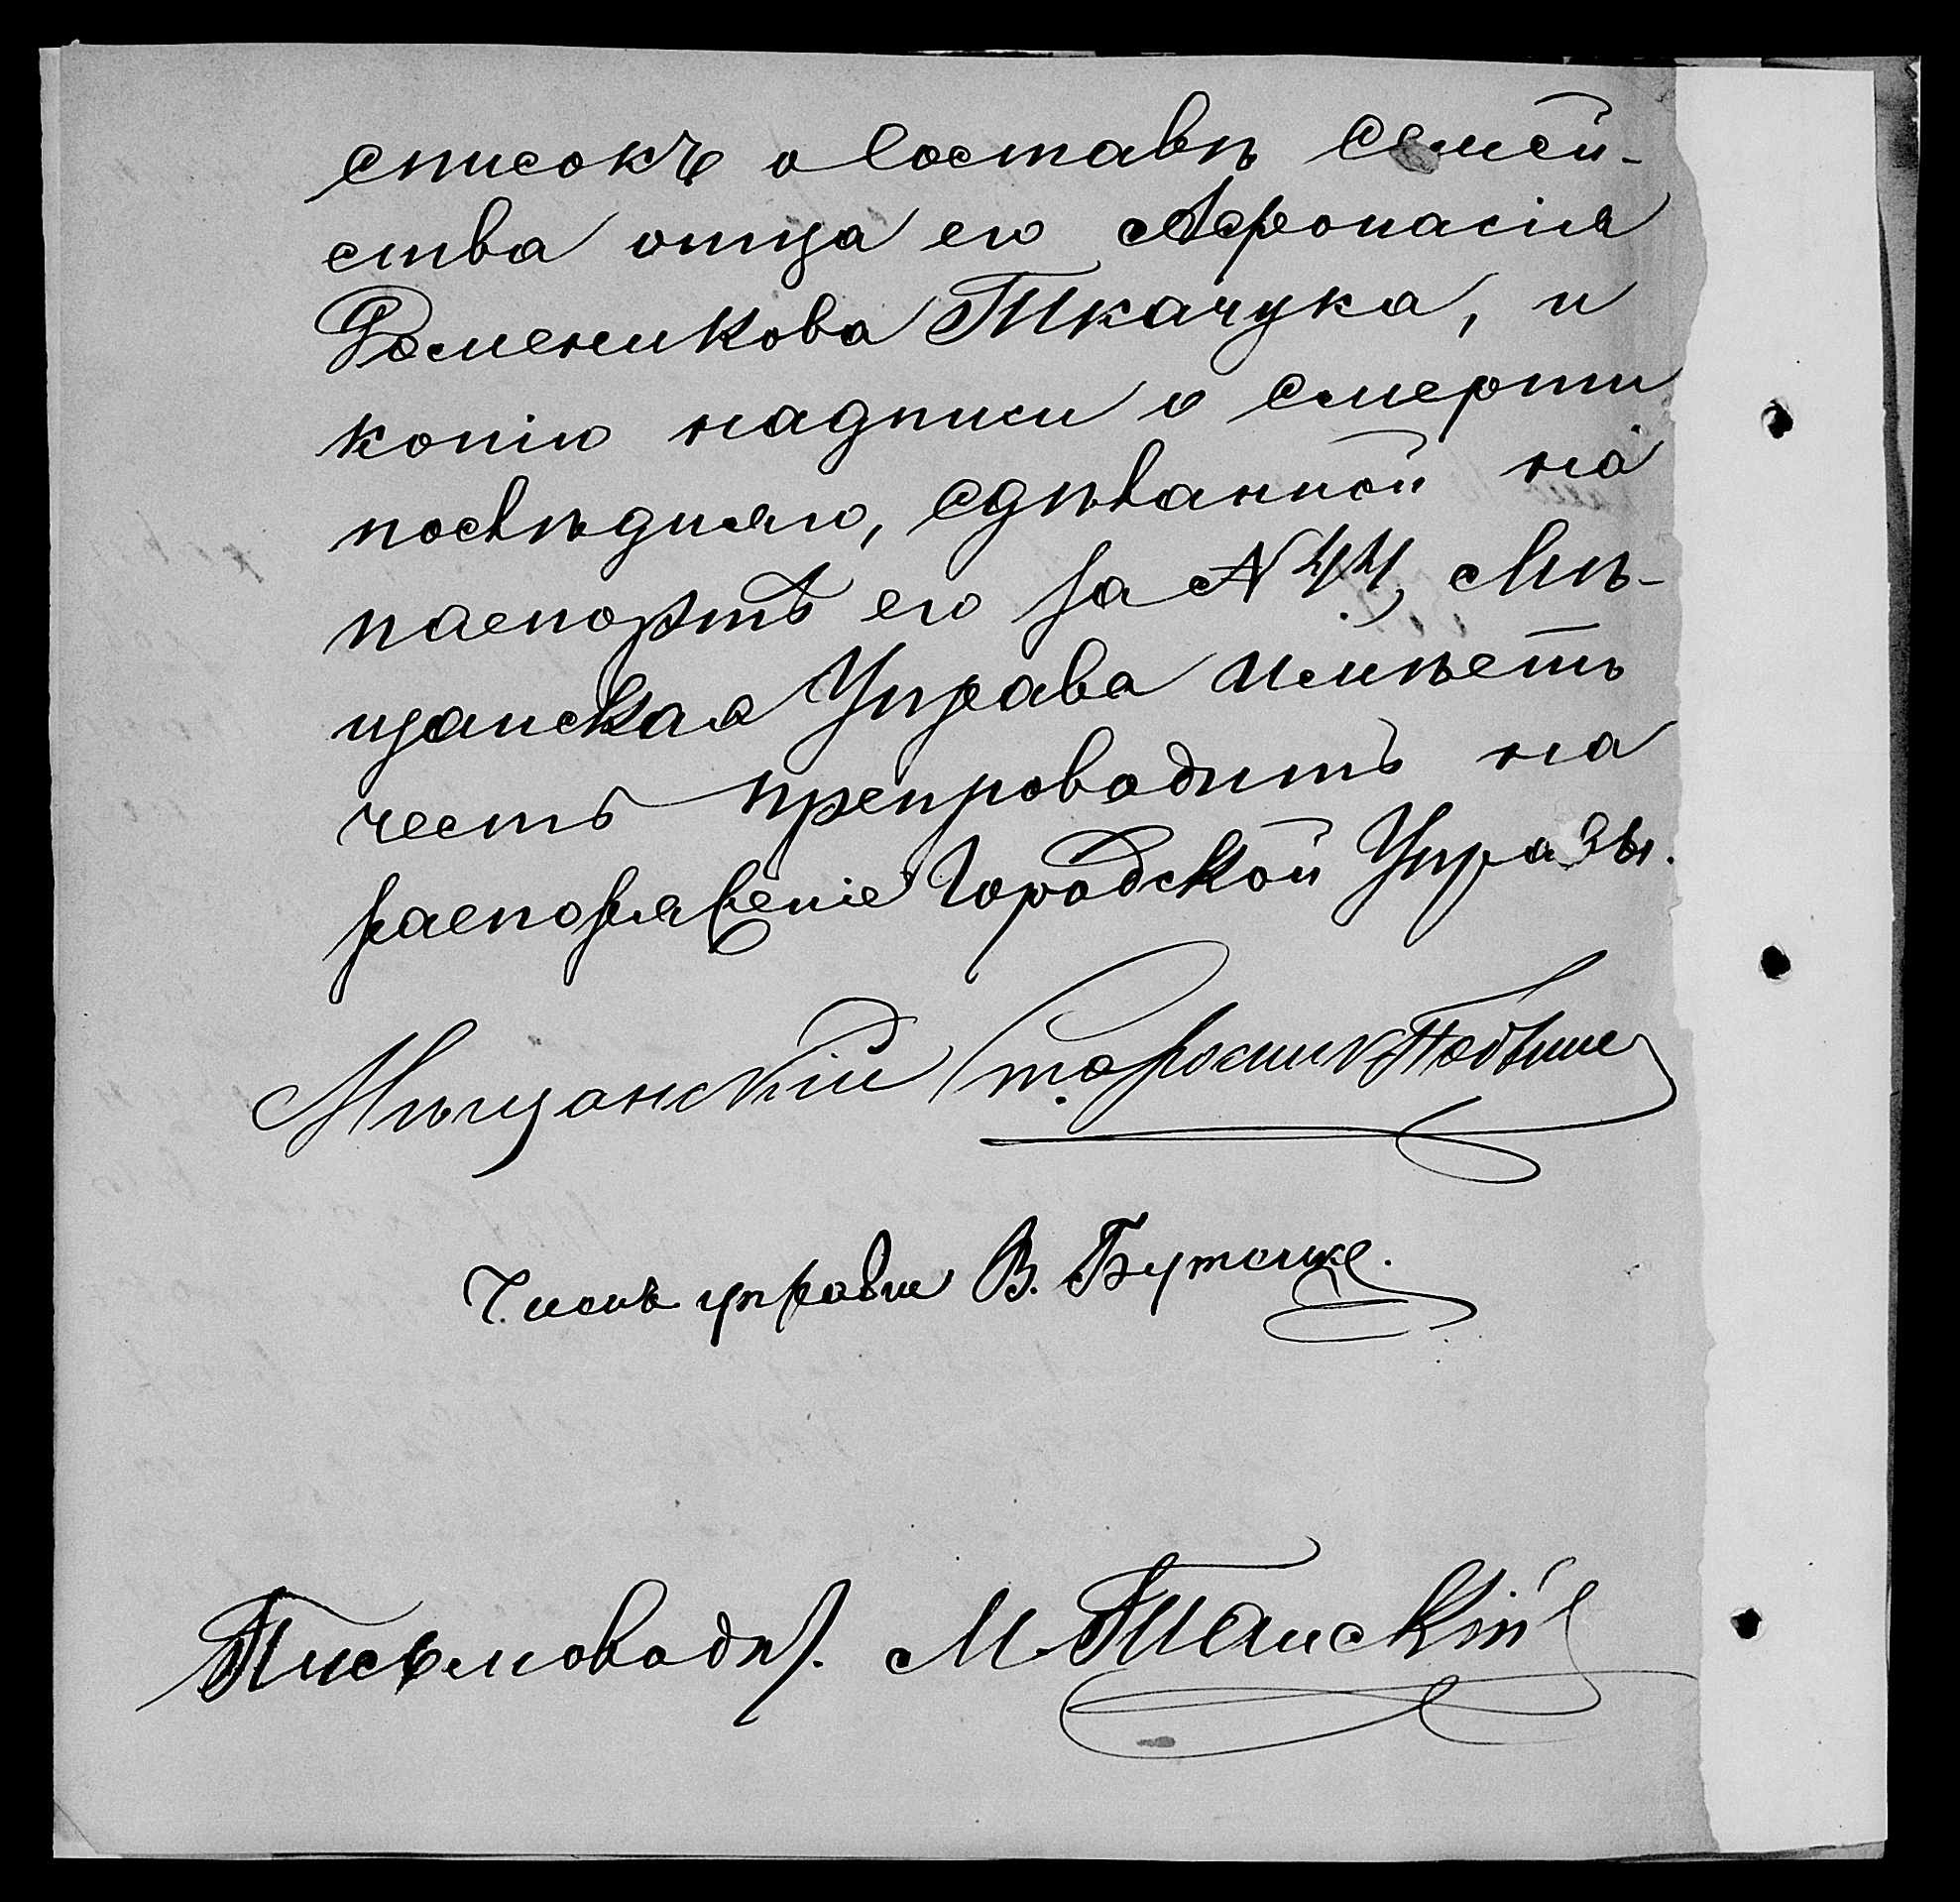 списокъ о составѣ семей-
ства отца его Афонасія
Фоменикова Ткачука, и
копію надписи о смерти
послѣдняго, сдѣланной на
паспортѣ его за № 44, Мѣ-
щанская Управа имѣетъ
честь препроводить на
распоряженіе Городской Управы.
Мѣщанскій Староста
Членъ управы В.
Письмовод. М.